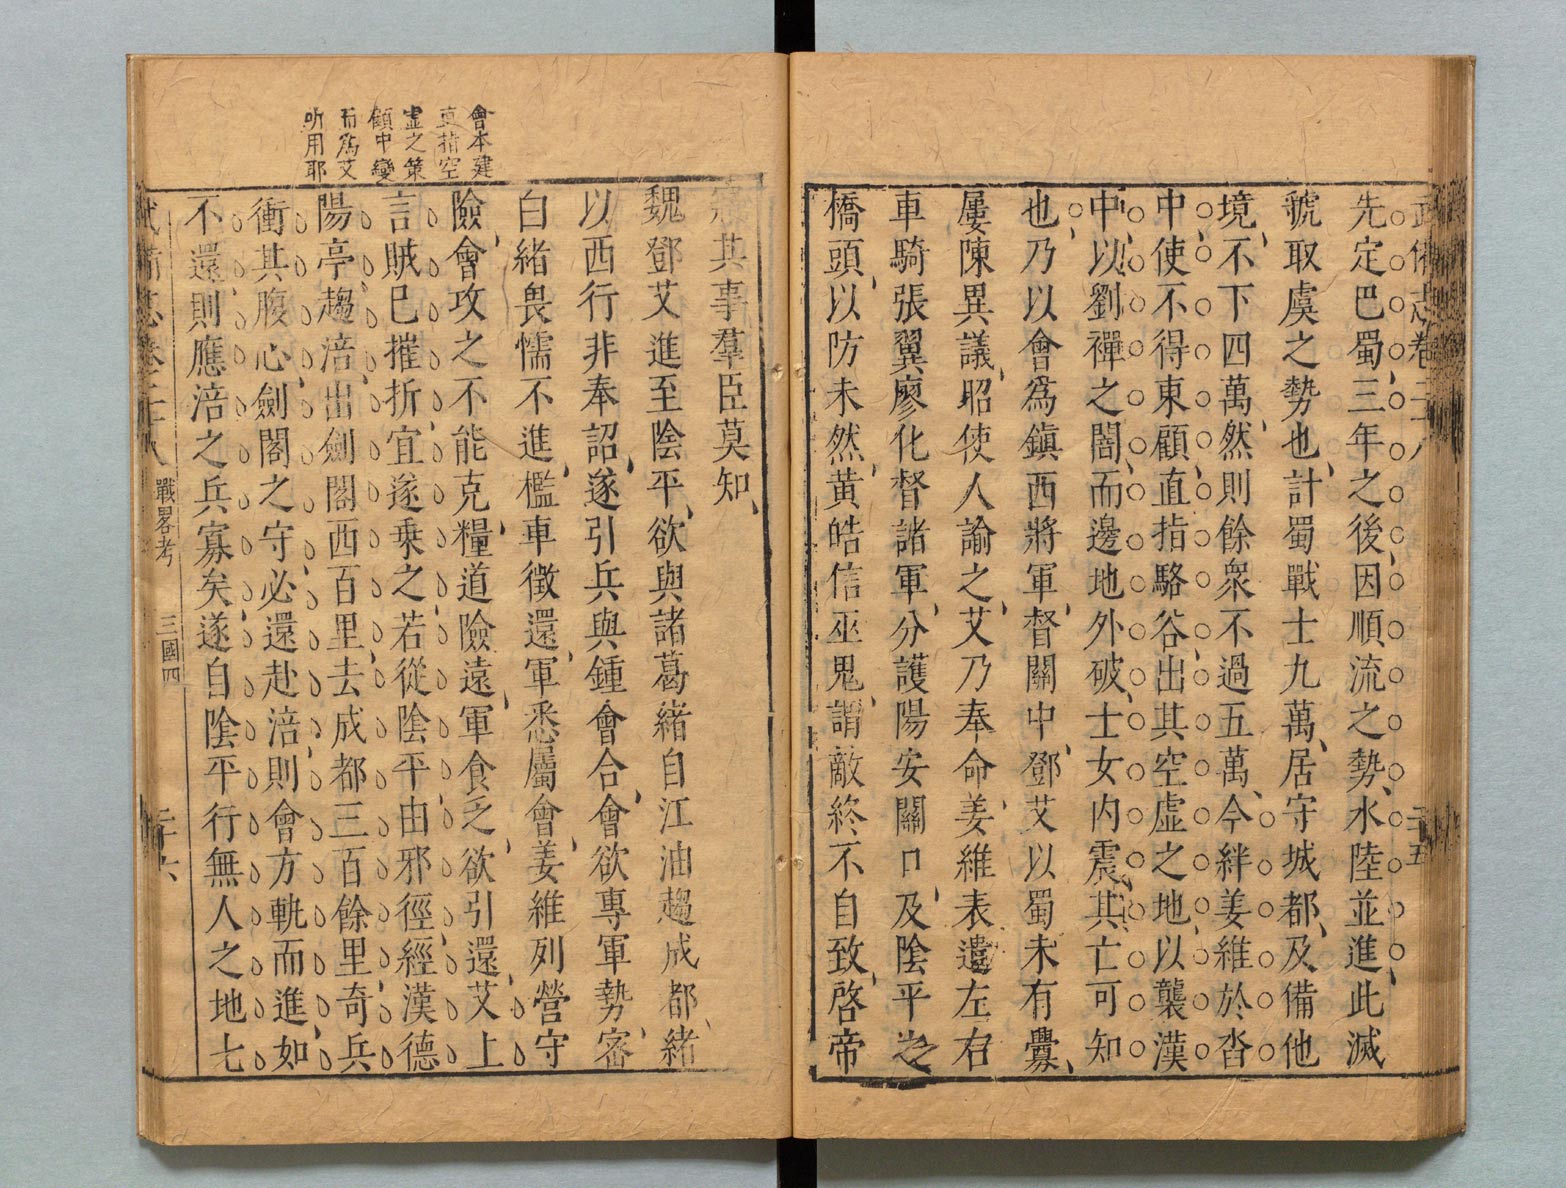 武備志卷二十八
二十五
先定巴蜀、三年之後、因順流之勢、水陸並進、此滅
虢取虞之勢也、計蜀戰士九萬、居守城都、及備他
境、不下四萬、然則餘衆不過五萬、今絆姜維於沓
中、使不得東顧、直指駱谷、出其空虛之地、以襲漢
中、以劉禪之闇、而邊地外破、士女內震、其亡可知
也、乃以會爲鎭西將軍、督關中、鄧艾以蜀未有釁、
屢陳異議、昭使人諭之、艾乃奉命、姜維表遣左右
車騎張翼廖化督諸軍、分護陽安關口、及陰平之
橋頭、以防未然、黃皓信巫鬼、謂敵終不自致、啓帝
寢其事羣臣莫知、
魏鄧艾進至陰平、欲與諸葛緒自江油趨成都、緒
以西行非奉詔、遂引兵與鍾會合、會欲專軍勢、密
白緒畏懦不進、檻車徵還、軍悉屬會、姜維列營守
險、會攻之不能克、糧道險遠、軍食乏、欲引還、艾上
言賊已摧折、宜遂乘之、若從陰平由邪徑、經漢德
陽亭、趨涪、出劍閣西百里、去成都三百餘里、奇兵
衝其腹心、劍閣之守必還赴涪、則會方軌而進、如
不還、則應涪之兵寡矣、遂自陰平行無人之地七
會本建
直指空
虛之策
顧中變
而爲艾
所用耶
武備志卷二十八
戰畧考
三國四
二十六